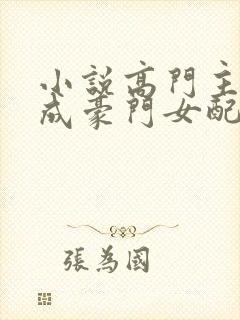 小說高門主
成豪門女配
張為國